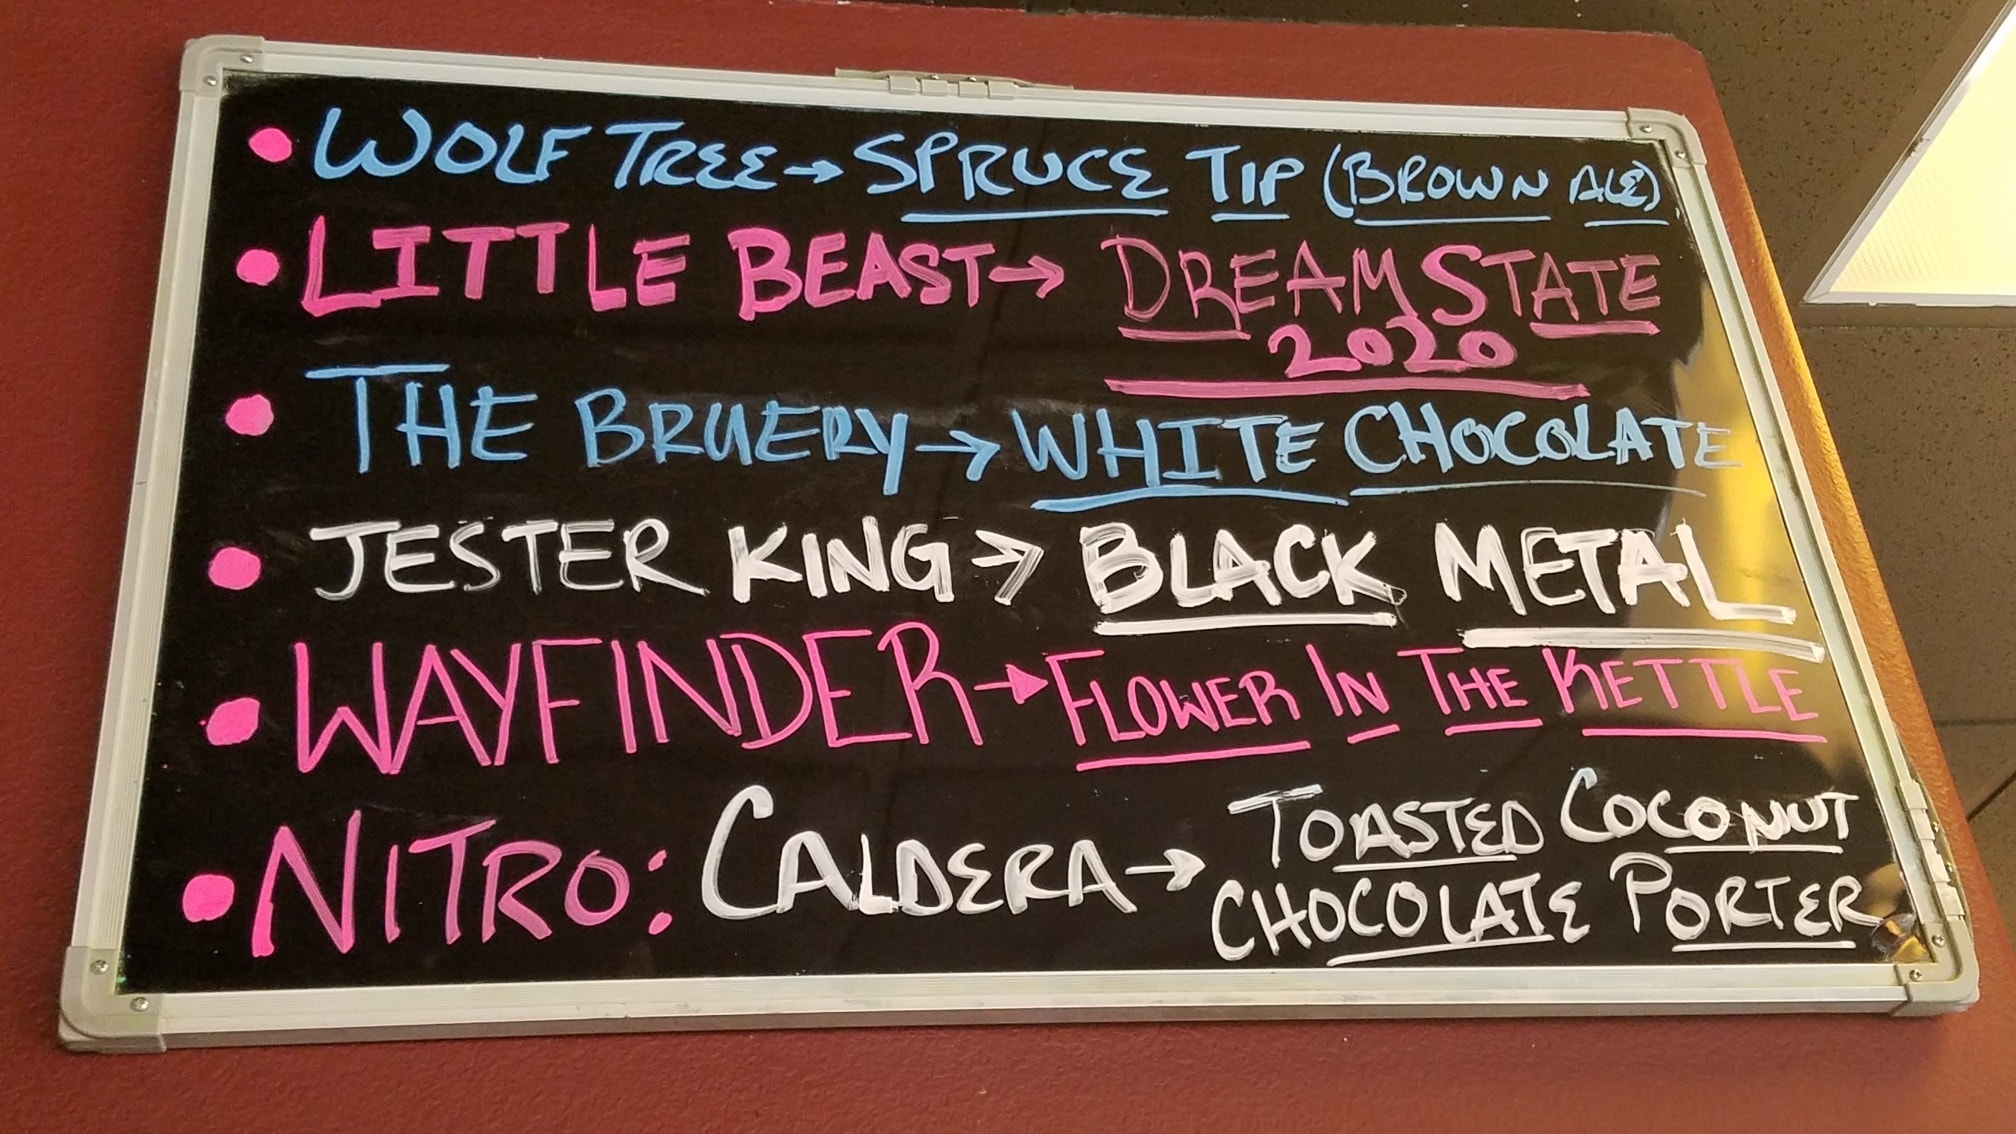 • WOLF TREE → SPRUCE TIP (BROWN ALE)
• LITTLE BEAST → DREAM STATE
2020
• THE BRUERY → WHITE CHOCOLATE
• JESTER KING > BLACK METAL
• WAYFINDER → FLOWER IN THE KETTLE
• NITRO: CALDERA → TOASTED COCONUT
CHOCOLATE PORTER